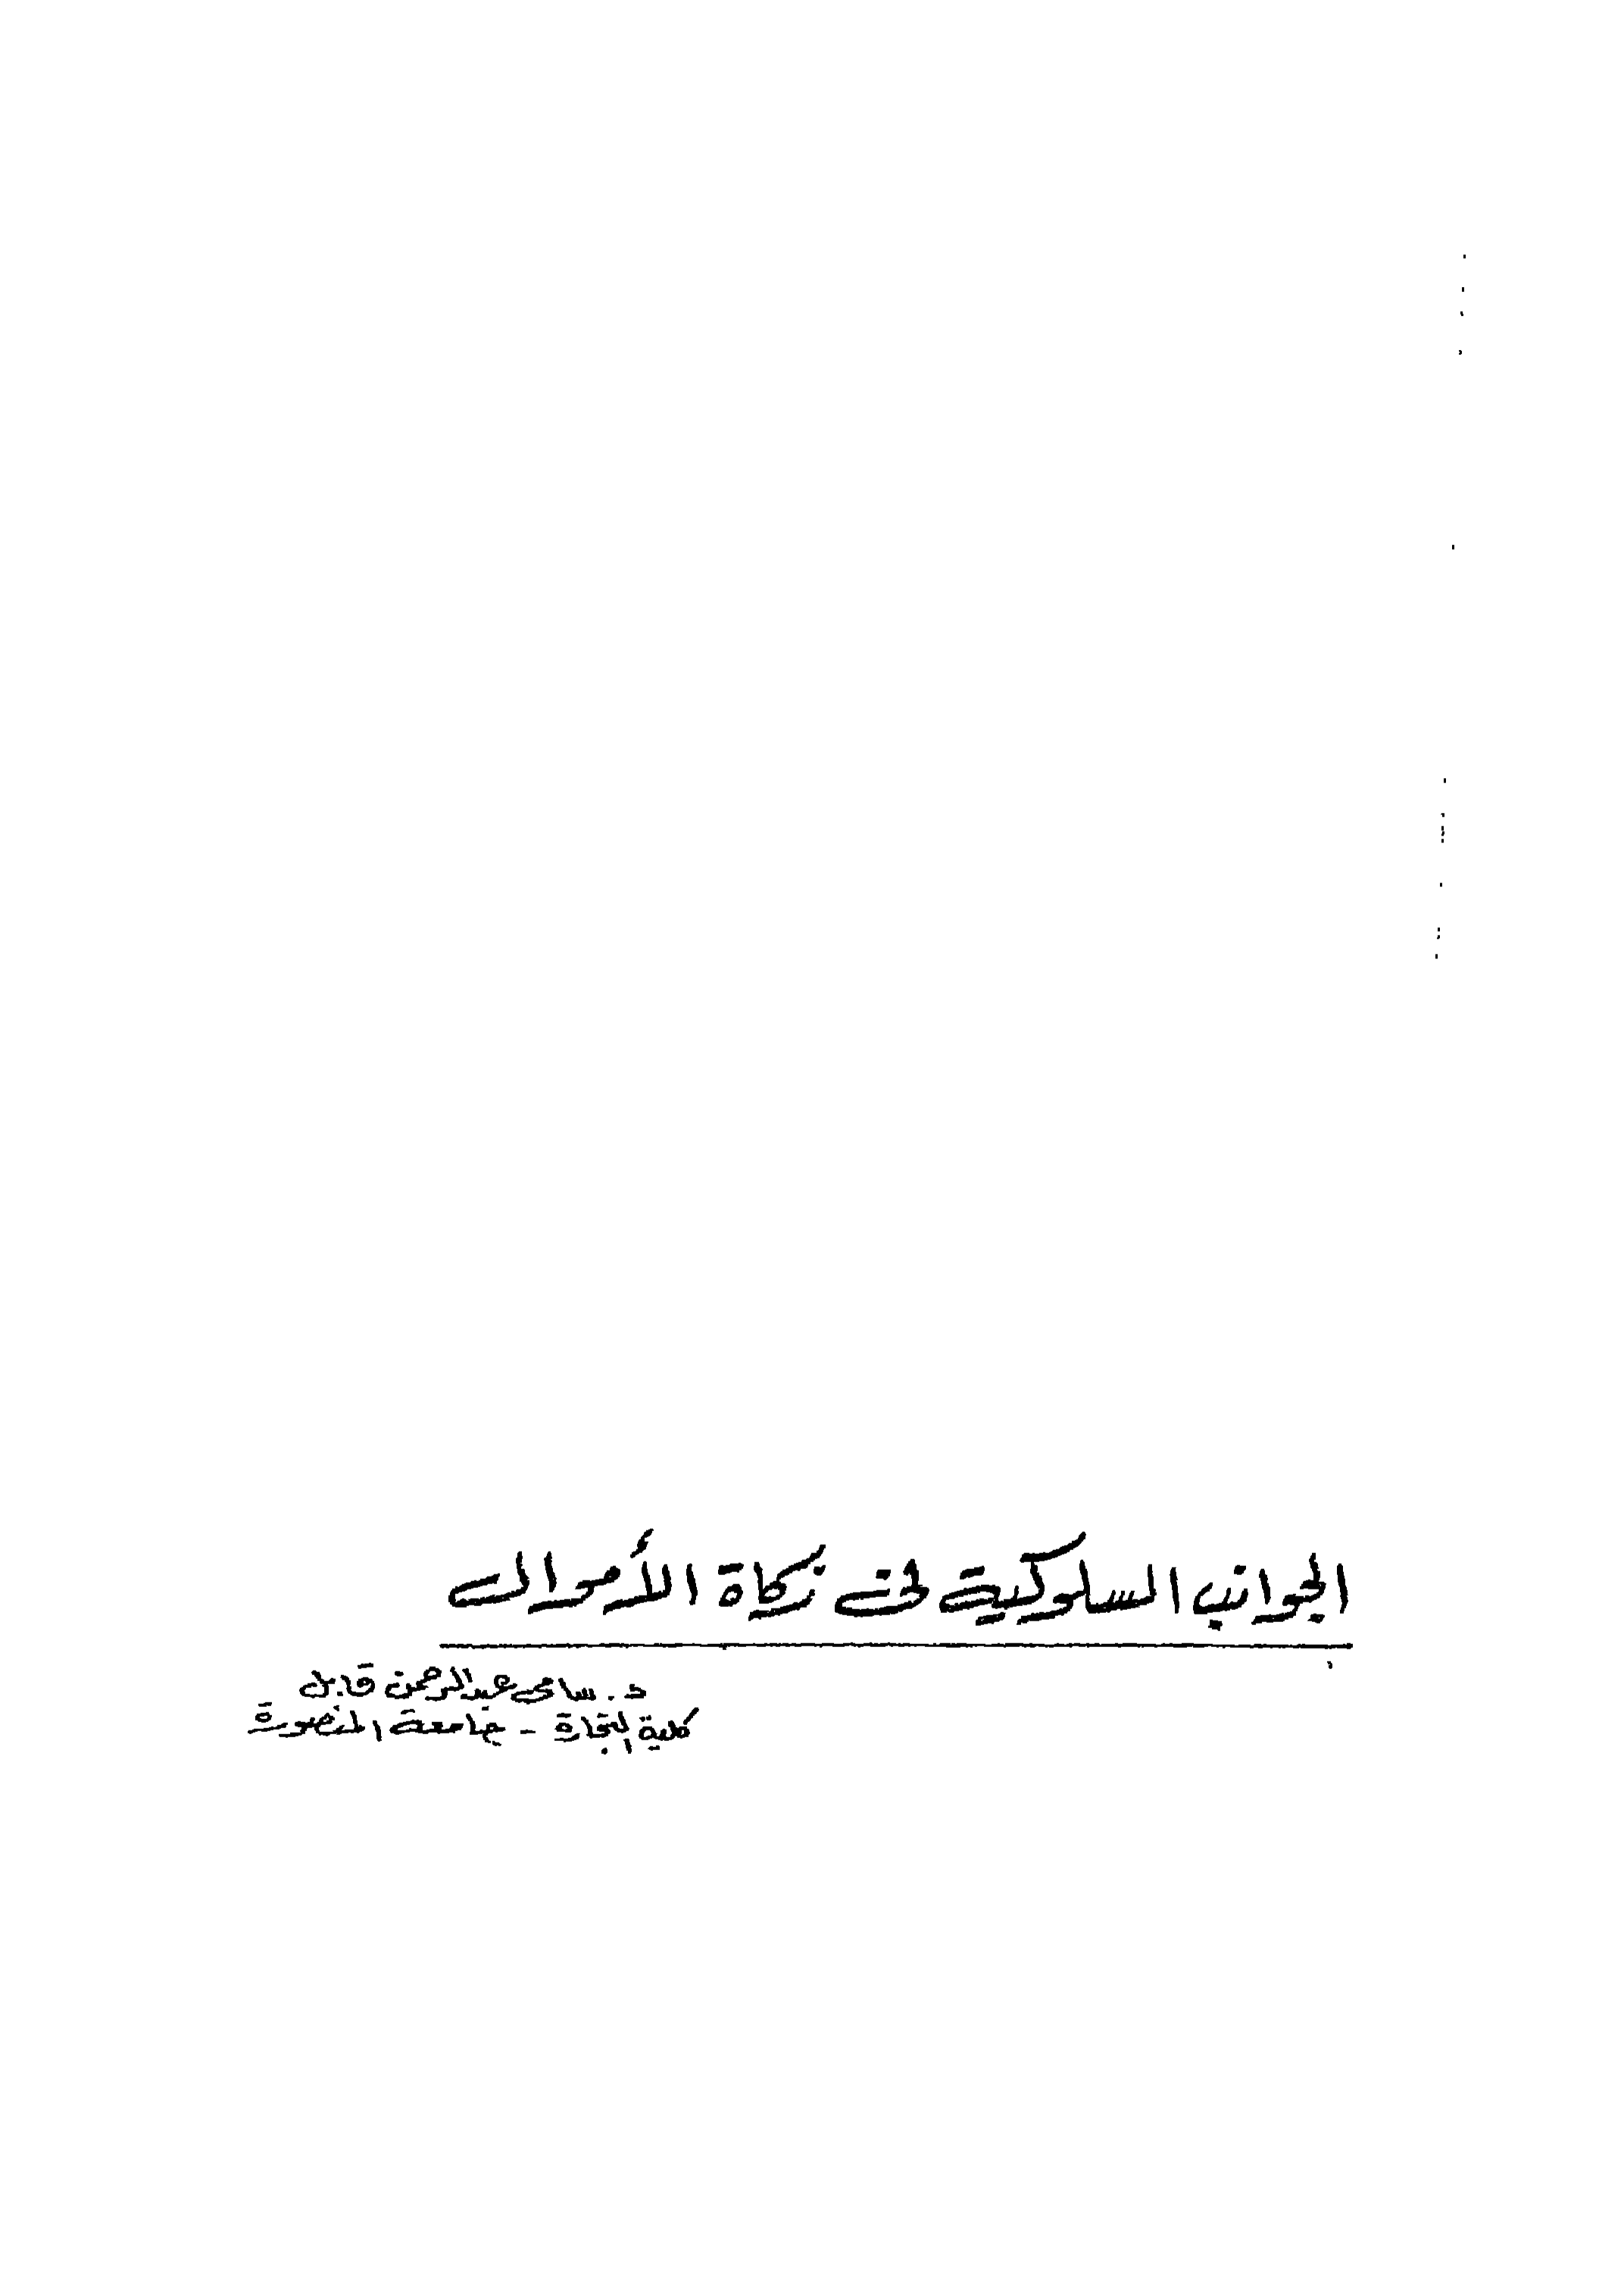 الجوانب السلوكية فى زكاة الأموال
د. سامى عبدالرحمن قابل
كلية التجارة - جامعة المنصورة